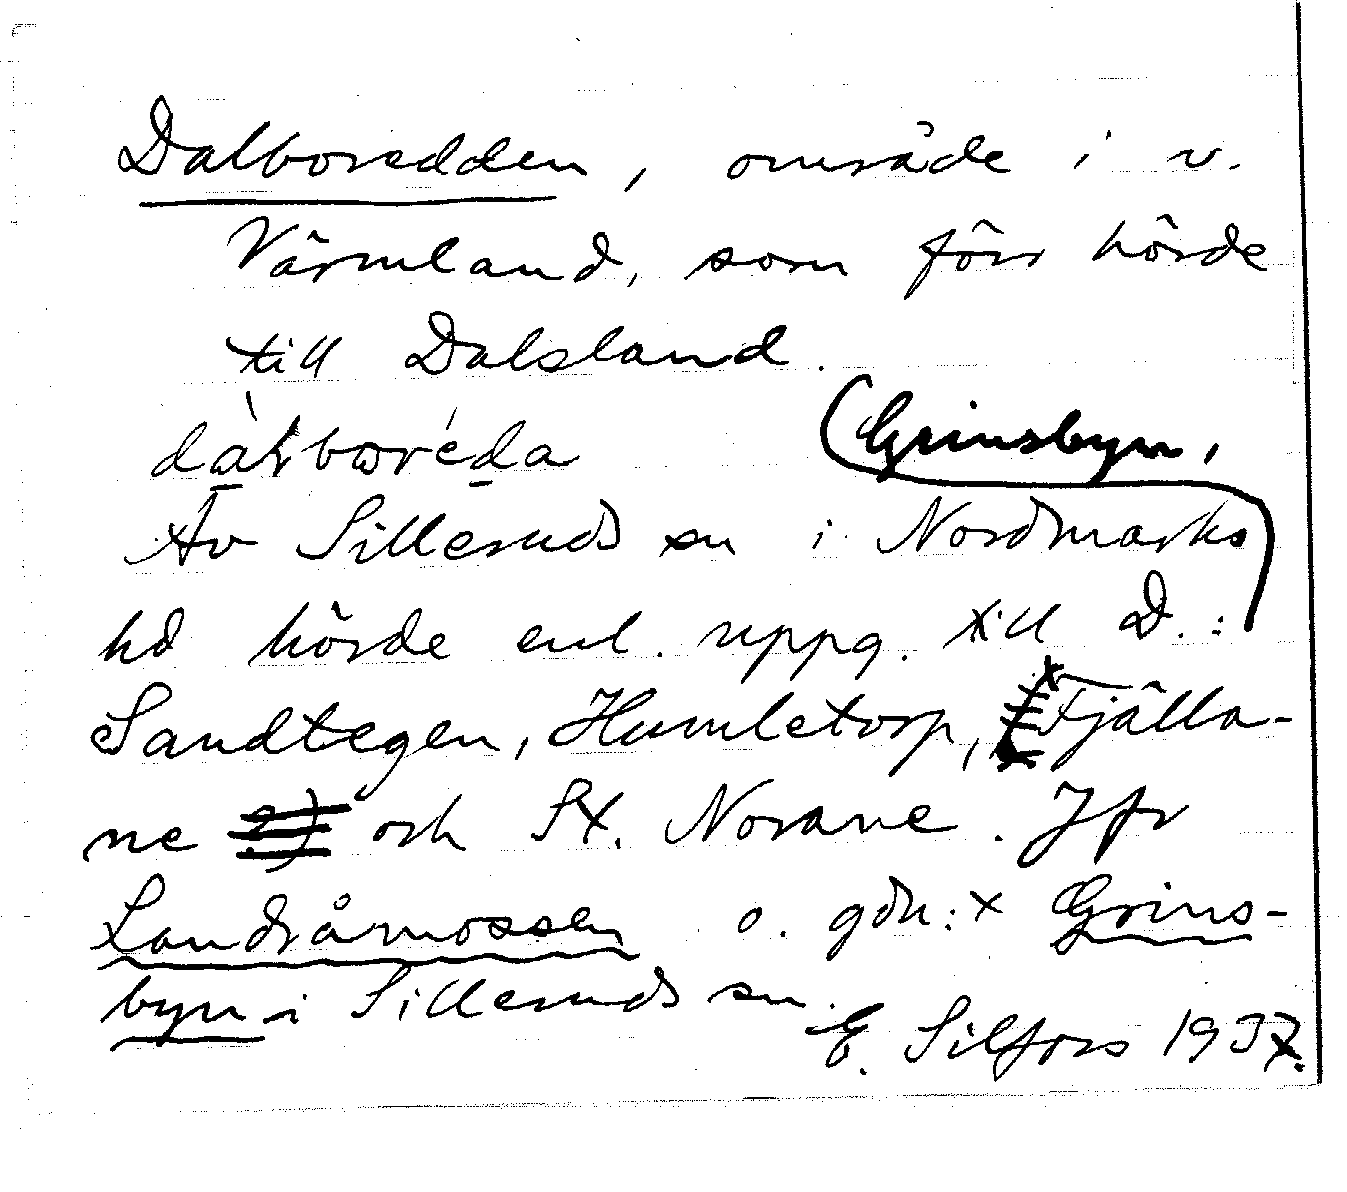 Dalboredden, område i v.
Värmland, som förr hörde
till Dalsland.
(Grinsbyn,
Av Silleruds sn i Nordmarks
hd hörde enl. uppg. till D.:
Sandtegen, Humletorp, Fjälla-
ne och St. Norane. Jfr
Landråmossen o. gdn: x Grins-
byn i Silleruds sn.
E. Silfors 1937.